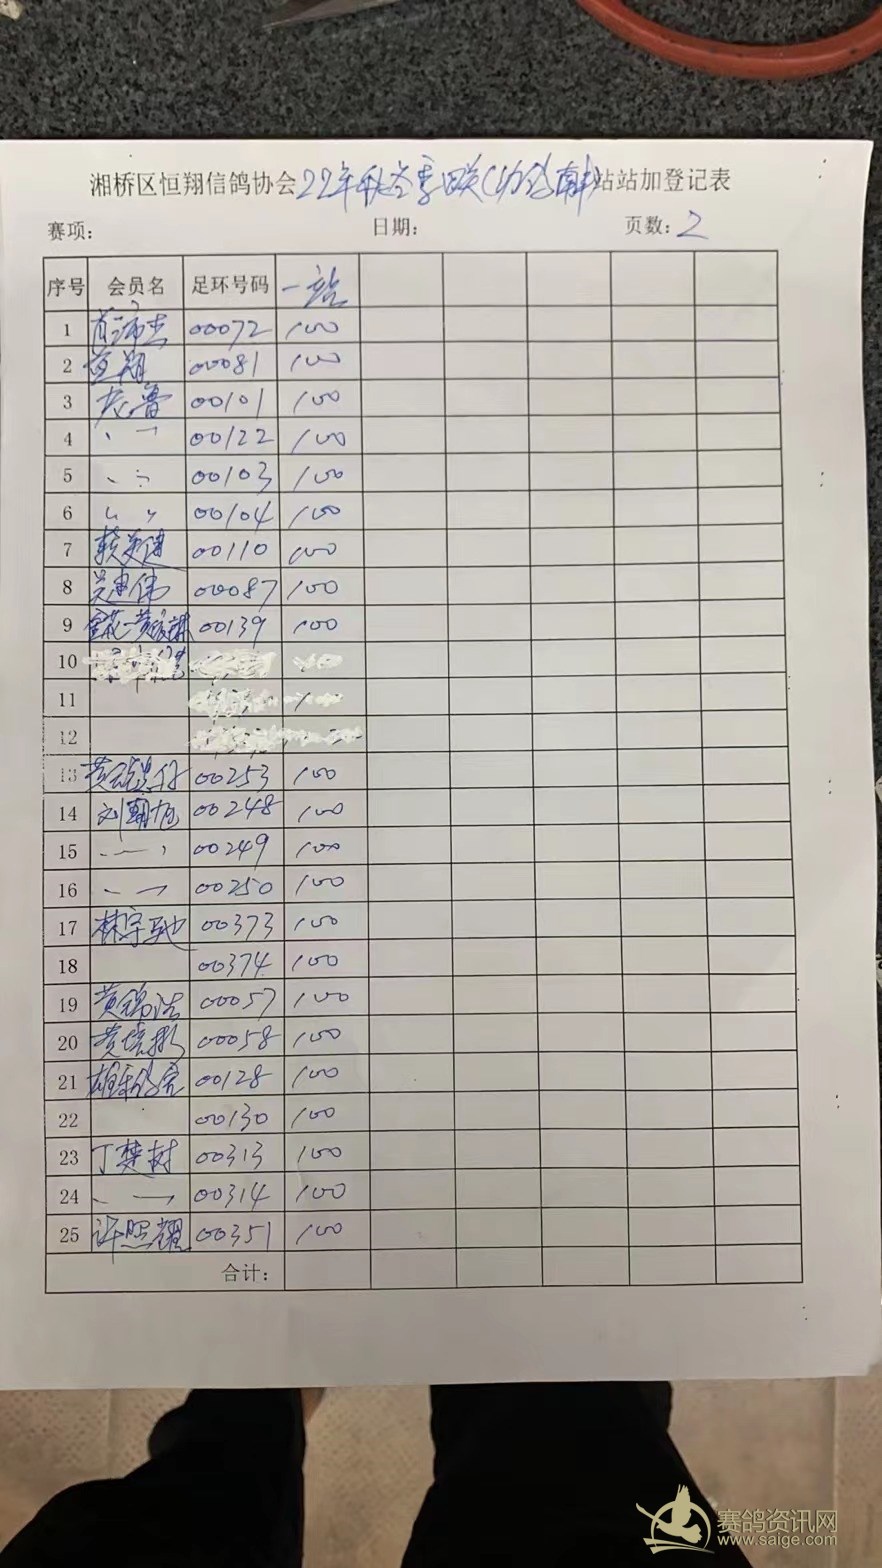 湘桥区恒翔信鸽协会22年秋冬季 站站加登记表
赛项: 日期: 页数: 2
序号 会员名 足环号码 一站
1 00072 100
2 00081 100
3 00101 100
4 00122 100
5 00103 100
6 00104 100
7 00110 100
8 吴建伟 00087 100
9 00139 100
10
11
12
13 00253 100
14 00248 100
15 00249 100
16 00250 100
17 林宇驰 00373 100
18 00374 100
19 黄锦浩 00057 100
20 00058 100
21 00128 100
22 00130 100
23 丁楚树 00313 100
24 00314 100
25 许照耀 00351 100
合计:
赛鸽资讯网
www.saige.com